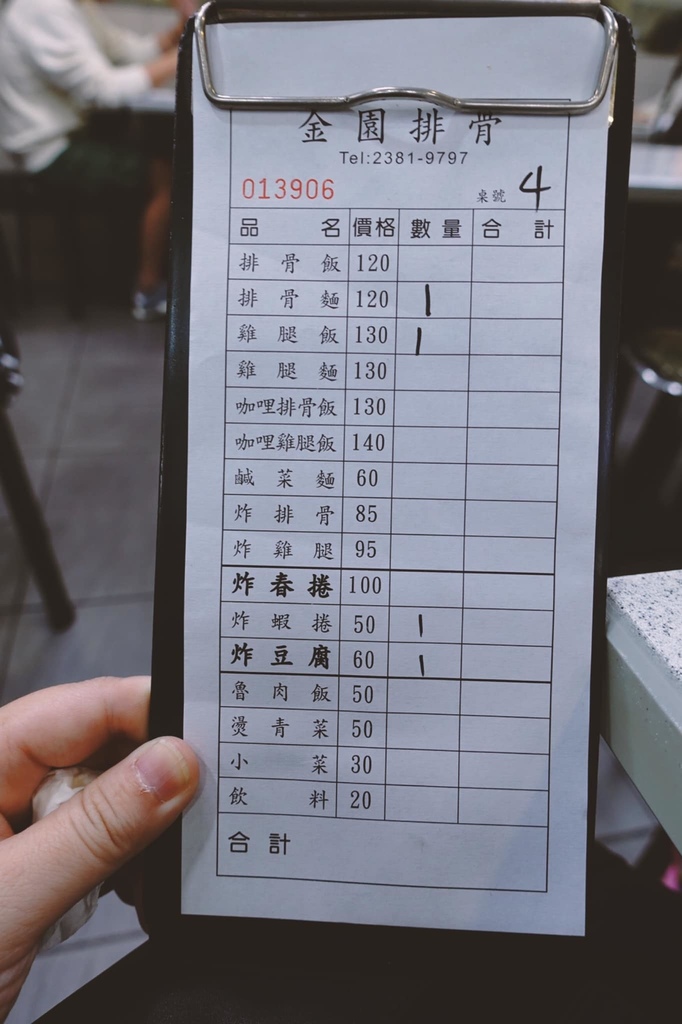 金園排骨
Tel:2381-9797
013906 桌號 4
品名 價格 數量 合計
排骨飯 120
排骨麵 120 1
雞腿飯 130 1
雞腿麵 130
咖哩排骨飯 130
咖哩雞腿飯 140
鹹菜麵 60
炸排骨 85
炸雞腿 95
炸春捲 100
炸蝦捲 50 1
炸豆腐 60 1
魯肉飯 50
燙青菜 50
小菜 30
飲料 20
合計